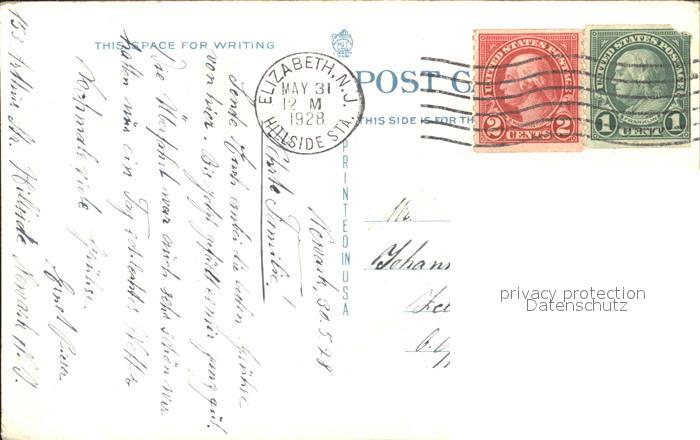 THIS SPACE FOR WRITING
POST CA
THIS SIDE IS FOR TH
PRINTED IN USA
ELIZABETH, N.J.
MAY 31
12 M
1928
HILLSIDE STA.
UNITED STATES POSTAGE
2 CENTS 2
UNITED STATES POSTAGE
FRANKLIN
1 CENT 1
Newark, 30.5.28
Familie!
Sende Euch die besten Grüsse
von hier. Bis jetzt gefällt es mir ganz gut.
Die Überfahrt war auch sehr schön wir
hatten nur ein Tag schlechtes Wetter
Nochmals viele Grüsse
Ernst
153 St. Hillside Newark N.J.
Mr.
Johann
privacy protection
Datenschutz